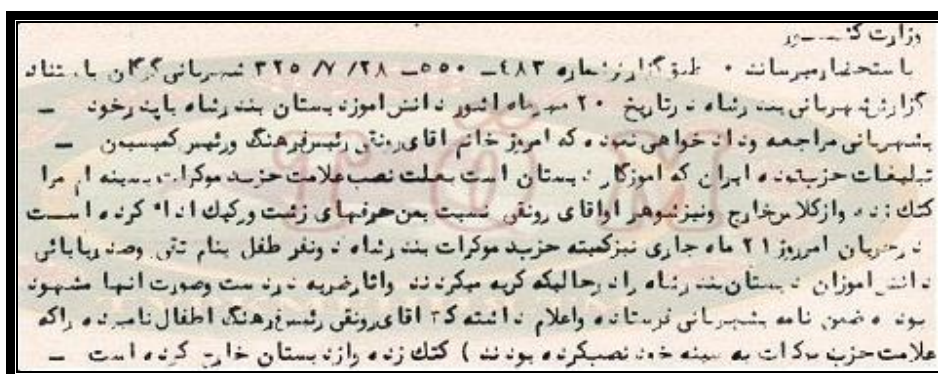 وزارت کشور
باستحضار میرساند ۰ طبق گزارش شماره ۴۸۳ـ ۵۵۰ـ ۲۸/ ۷/ ۳۲۵ شهربانی گرگان باستناد
گزارش شهربانی بندرشاه درتاریخ ۲۰ مهرماه انور دانش اموز دبستان بندرشاه باپدرخود ـ
بشهربانی مراجعه وداد خواهی نموده که امروز خانم اقای رونقی رئیس فرهنگ ورئیس کمیسیون ـ
تبلیغات حزب توده ایران که اموزگار دبستان است بعلت نصب علامت حزب دموکرات بسینه ام مرا
کتك زده وازکلاس خارج ونیزشوهر اواقای رونقی نسبت بمن حرفهای زشت ورکیك ادا کرده اسـت
درجریان امرروز ۲۱ ماه جاری نیزکمیته حزب دموکرات بندرشاه دونفر طفل بنام تقی وصدربابائی
دانش اموزان دبستان بندرشاه رادرحالیکه گریه میکردند واثارضربه دردست وصورت انها مشهود
بوده ضمن نامه بشهربانی فرستاده واعلام داشته که اقای رونقی رئیس فرهنگ اطفال نامبرده راکه
علامت حزب دموکرات به سینه خود نصب کرده بودند ) کتك زده وازدبستان خارج کرده است ـ